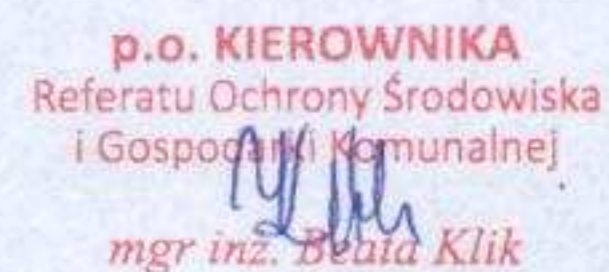 p.o. KIEROWNIKA
Referatu Ochrony Środowiska
i Gospodarki Komunalnej
mgr inż. Beata Klik